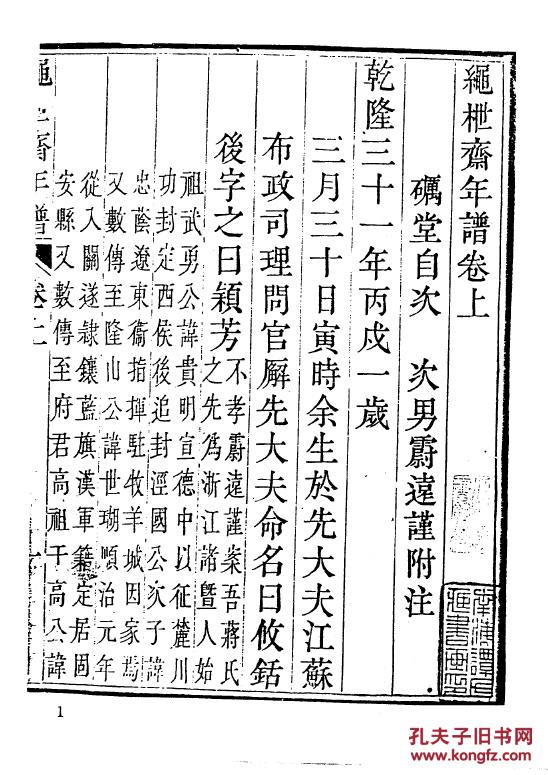 繩枻齋年譜卷上
礪堂自次　次男霨遠謹附注
乾隆三十一年丙戌一歲
三月三十日寅時余生於先大夫江蘇
布政司理問官廨先大夫命名曰攸銛
後字之曰穎芳不孝霨遠謹案吾蔣氏
之先爲浙江諸暨人始
祖武勇公諱貴明宣德中以征麓川
功封定西侯後追封涇國公次子諱
忠蔭遼東衞指揮駐牧羊城因家焉
又數傳至隆山公諱世瑚順治元年
從入關遂隸鑲藍旗漢軍籍定居固
安縣又數傳至府君高祖干高公諱
繩枻齋年譜
卷上
1
孔夫子旧书网